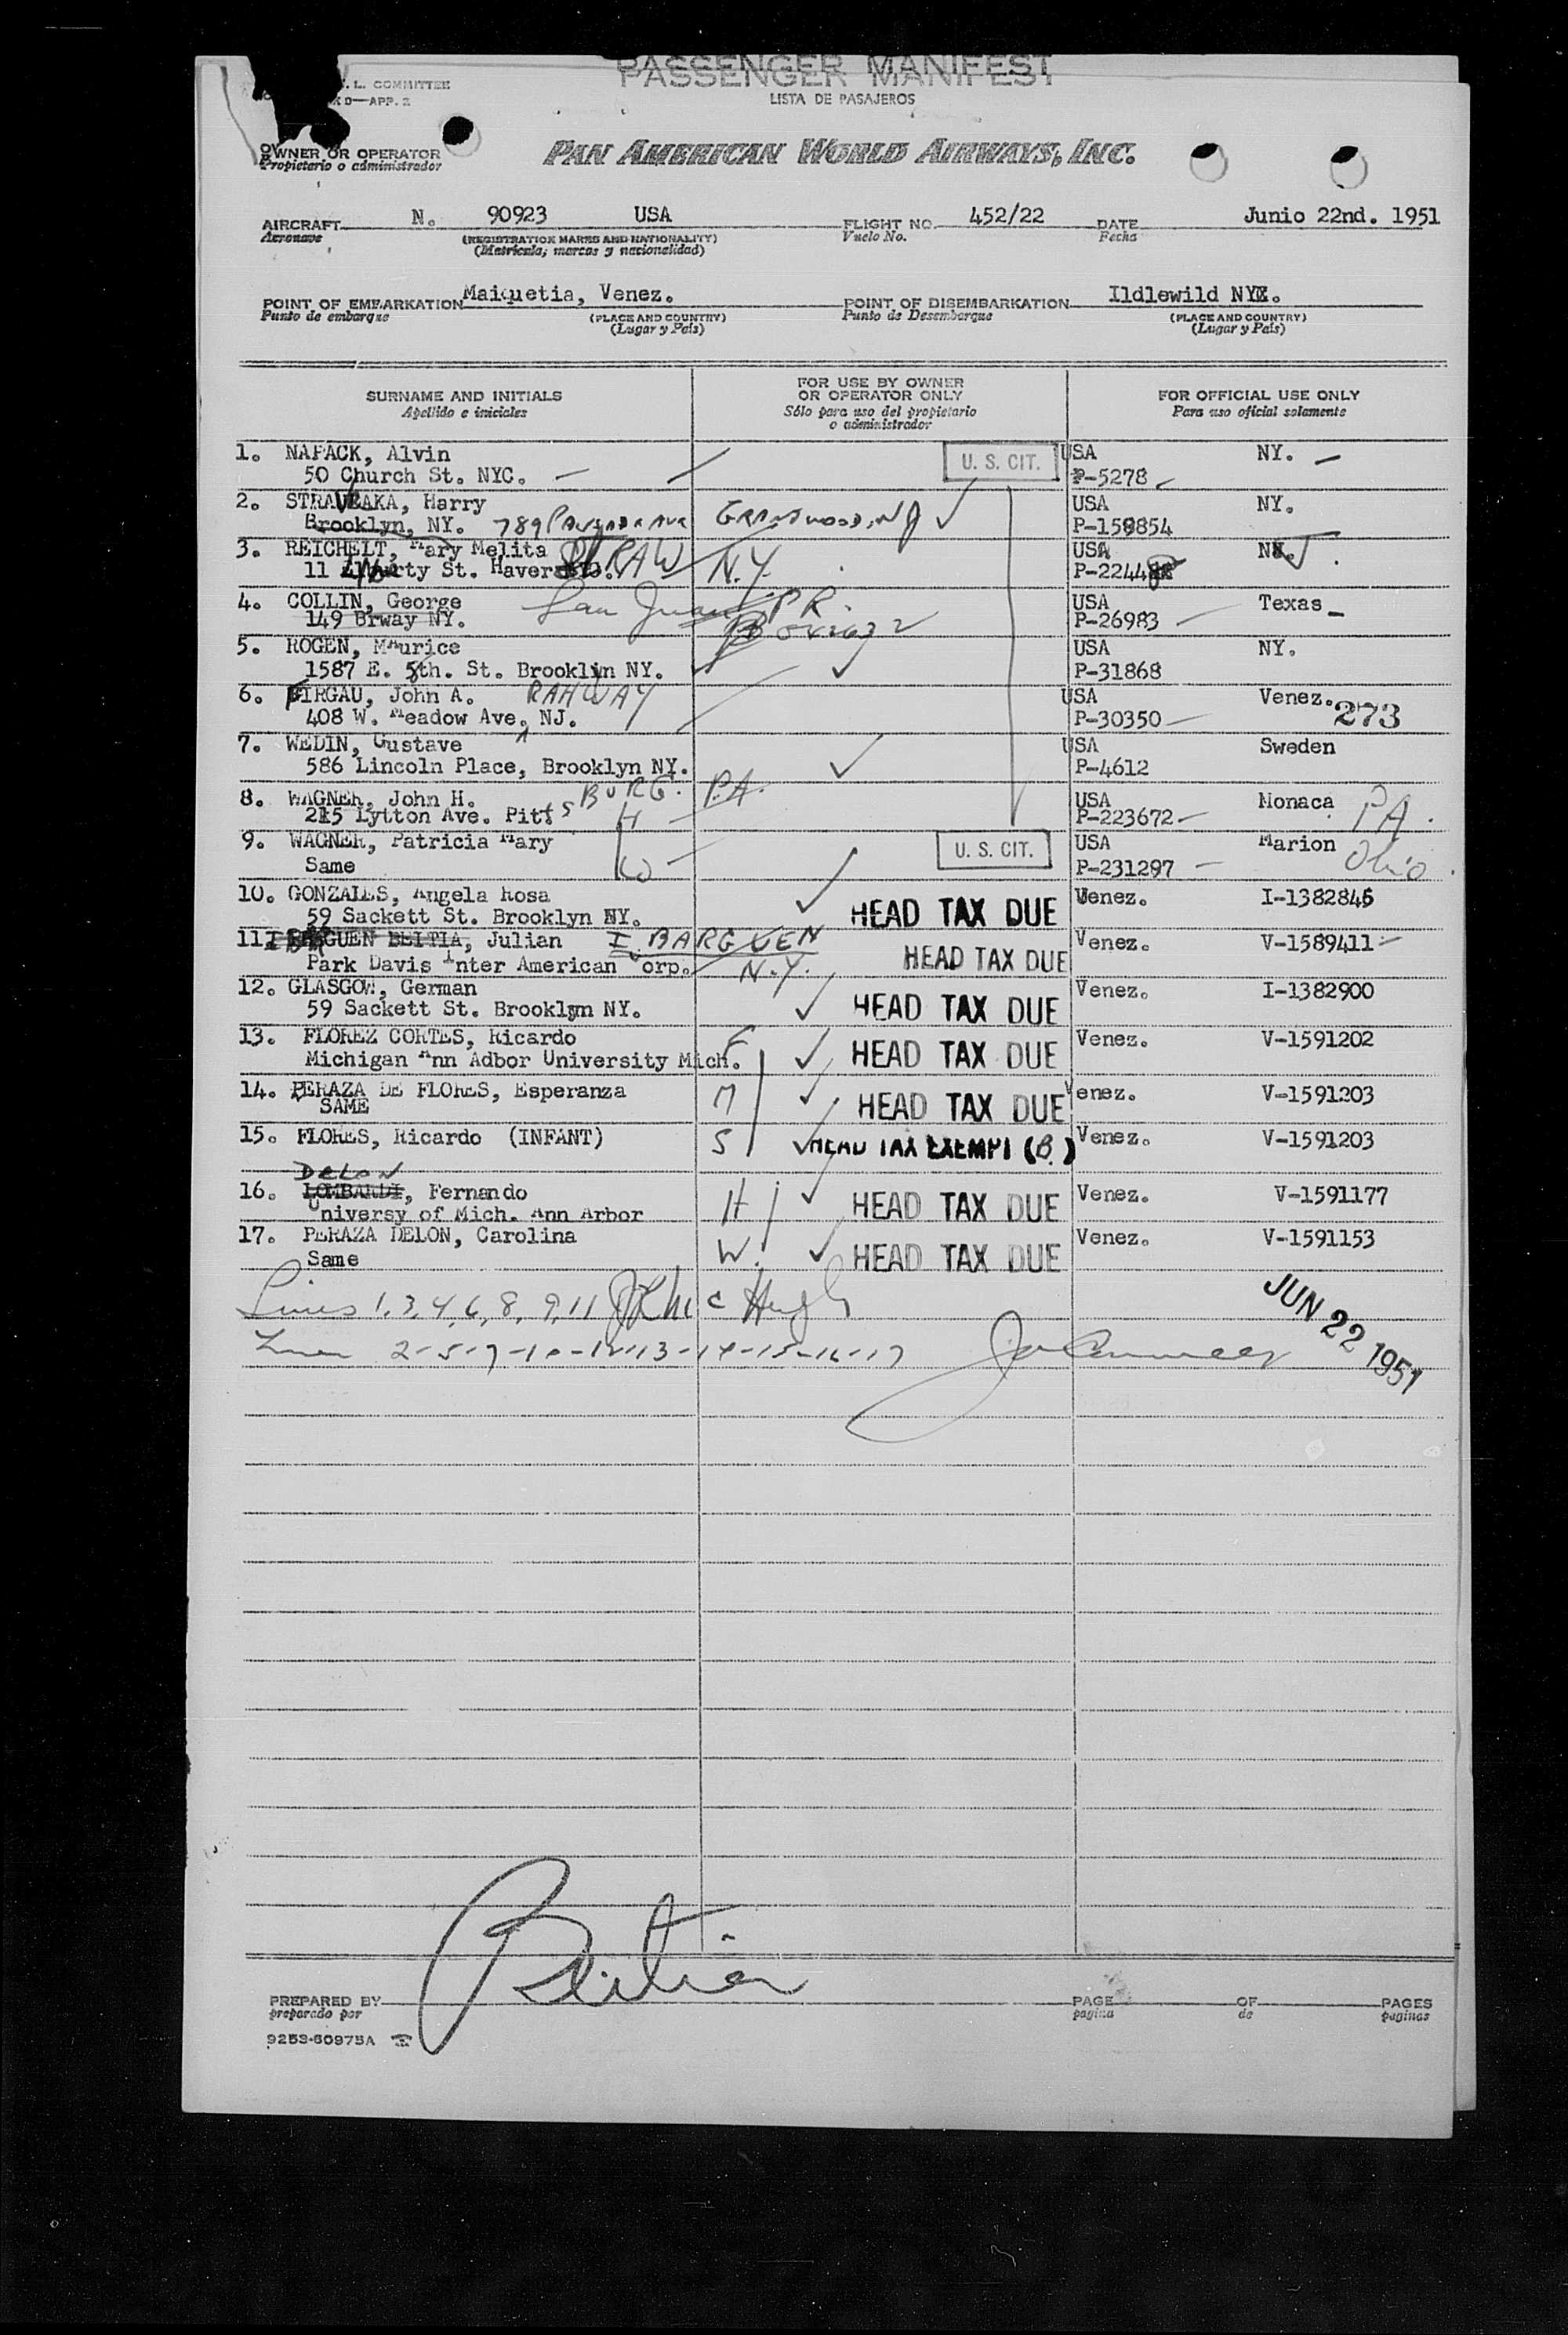 PASSENGER MANIFEST
L. COMMITTEE
D—APP. 2
LISTA DE PASAJEROS
OWNER OR OPERATOR
Propietario o administrador
PAN AMERICAN WORLD AIRWAYS, INC.
AIRCRAFT N. 90923 USA FLIGHT NO. 452/22 DATE Junio 22nd. 1951
Aeronave (REGISTRATION MARKS AND NATIONALITY) Vuelo No. Fecha
(Matrícula; marcas y nacionalidad)
POINT OF EMBARKATION Maiquetia, Venez. POINT OF DISEMBARKATION Ildlewild NY.
Punto de embarque (PLACE AND COUNTRY) Punto de Desembarque (PLACE AND COUNTRY)
(Lugar y País) (Lugar y País)
SURNAME AND INITIALS FOR USE BY OWNER OR OPERATOR ONLY FOR OFFICIAL USE ONLY
Apellido e iniciales Sólo para uso del propietario o administrador Para uso oficial solamente
1. NAPACK, Alvin U. S. CIT. USA NY. —
50 Church St. NYC. — P-5278
2. Harry USA NY.
Brooklyn, NY. 789 GRANTWOOD, NJ P-159854
3. REICHELT, Mary Melita USA
11 St. STRAW N.Y.
4. COLLIN, George San Juan PR. USA Texas
149 Brway NY. P-26983
5. ROGEN, Maurice USA NY.
1587 E. 5th. St. Brooklyn NY. P-31868
6. FIRGAU, John A. RAHWAY USA Venez. 273
408 W. Meadow Ave, NJ. P-30350
7. WEDIN, Gustave USA Sweden
586 Lincoln Place, Brooklyn NY. P-4612
8. WAGNER, John H. BURG. PA. USA Monaca PA.
215 Lytton Ave. Pitts H P-223672
9. WAGNER, Patricia Mary U. S. CIT. USA Marion Ohio.
Same W P-231297
10. GONZALES, Angela Rosa Venez. I-1382846
59 Sackett St. Brooklyn NY. HEAD TAX DUE
11. BEITIA, Julian IBARGUEN Venez. V-1589411
Park Davis Inter American Corp. N.Y. HEAD TAX DUE
12. GLASGOW, German Venez. I-1382900
59 Sackett St. Brooklyn NY. HEAD TAX DUE
13. FLOREZ CORTES, Ricardo F Venez. V-1591202
Michigan Ann Adbor University Mich. HEAD TAX DUE
14. PERAZA DE FLORES, Esperanza M Venez. V-1591203
SAME HEAD TAX DUE
15. FLORES, Ricardo (INFANT) S HEAD TAX EXEMPT (B.) Venez. V-1591203
DELON
16. LOMBARDI, Fernando H Venez. V-1591177
Universy of Mich. Ann Arbor HEAD TAX DUE
17. PERAZA DELON, Carolina W. Venez. V-1591153
Same HEAD TAX DUE
Lines 1, 3, 4, 6, 8, 9, 11 Mc Hugh
JUN 22 1951
2-5-7-10-12-13-14-15-16-17
Beitia
PREPARED BY PAGE OF PAGES
preparado por pagina de paginas
9253-60975A